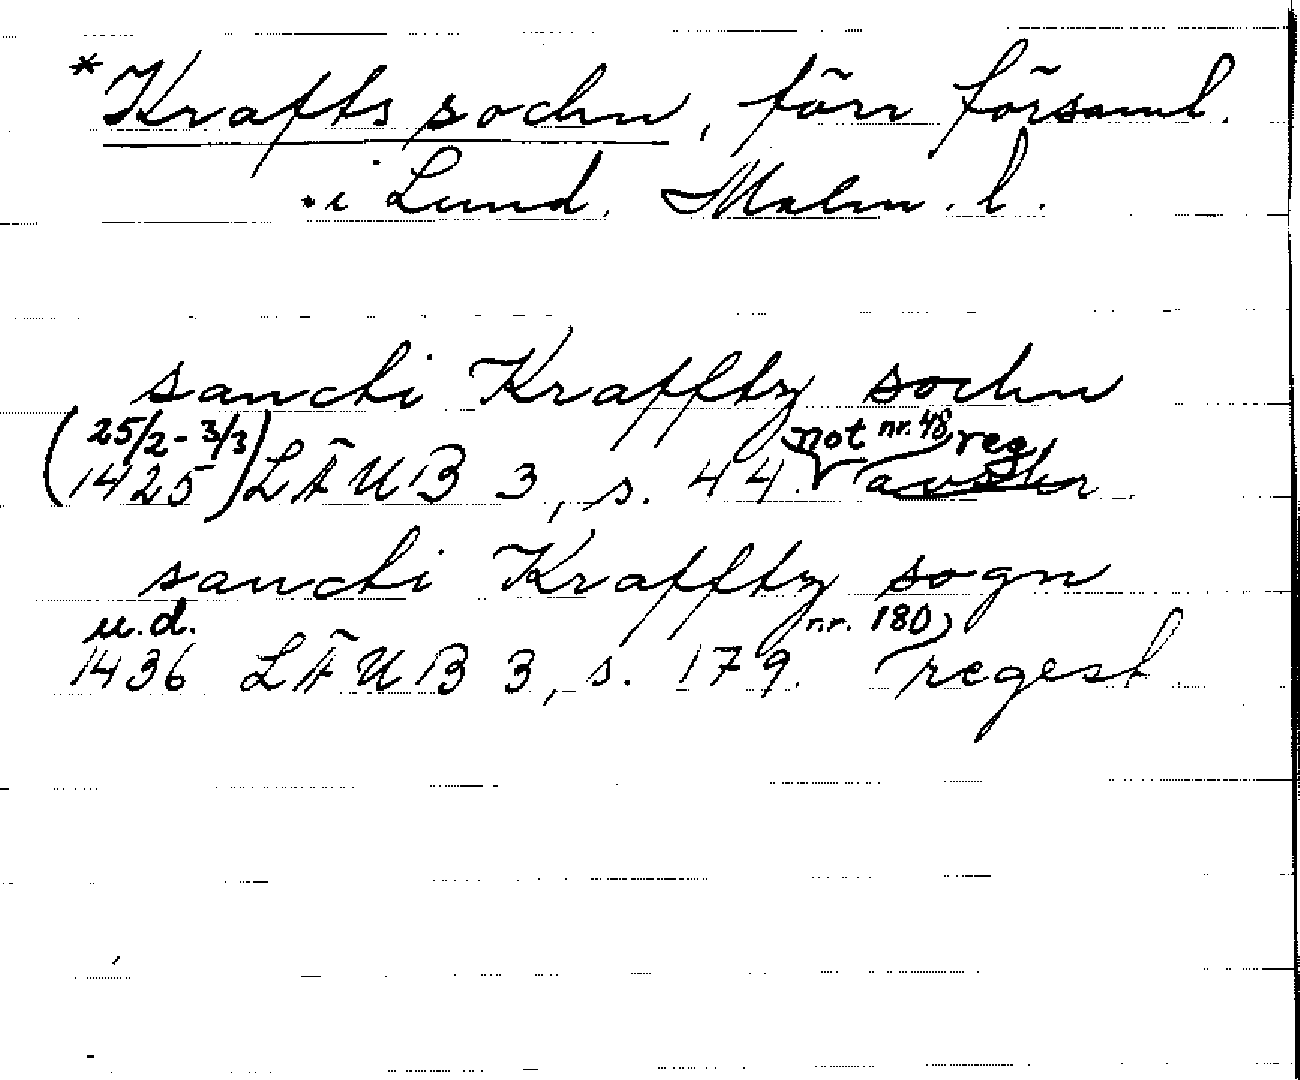 *Krafts sochn, förr församl.
i Lund. Malm. l.
sancti Krafftz sochn
(25/2-3/3) not nr. 48, reg
1425 LÄUB 3, s. 44.
sancti Krafftz sogn
u.d. nr. 180,
1436 LÄUB 3, s. 179. regest